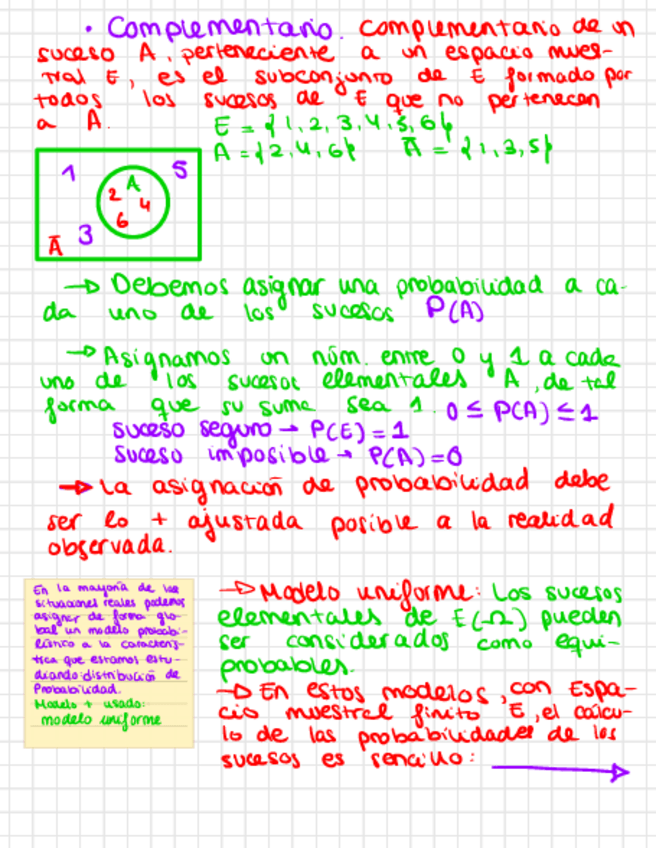 • Complementario. Complementario de un
suceso A, perteneciente a un espacio mues-
tral E, es el subconjunto de E formado por
todos los sucesos de E que no pertenecen
a A.
E = {1, 2, 3, 4, 5, 6}
A = {2, 4, 6} Ā = {1, 3, 5}
1 5
A
2 4
6
Ā 3
→ Debemos asignar una probabilidad a ca-
da uno de los sucesos P(A)
→ Asignamos un núm. entre 0 y 1 a cada
uno de los sucesos elementales A, de tal
forma que su suma sea 1. 0 ≤ P(A) ≤ 1
suceso seguro → P(E) = 1
suceso imposible → P(A) = 0
→ La asignación de probabilidad debe
ser lo + ajustada posible a la realidad
observada.
En la mayoría de las
situaciones reales podemos
asignar de forma glo-
bal un modelo probabi-
lístico a la caracterís-
tica que estamos estu-
diando: distribución de
Probabilidad.
Modelo + usado:
modelo uniforme
→ Modelo uniforme: Los sucesos
elementales de E(Ω) pueden
ser considerados como equi-
probables.
→ En estos modelos, con Espa-
cio muestral finito E, el cálcu-
lo de las probabilidades de los
sucesos es sencillo: →